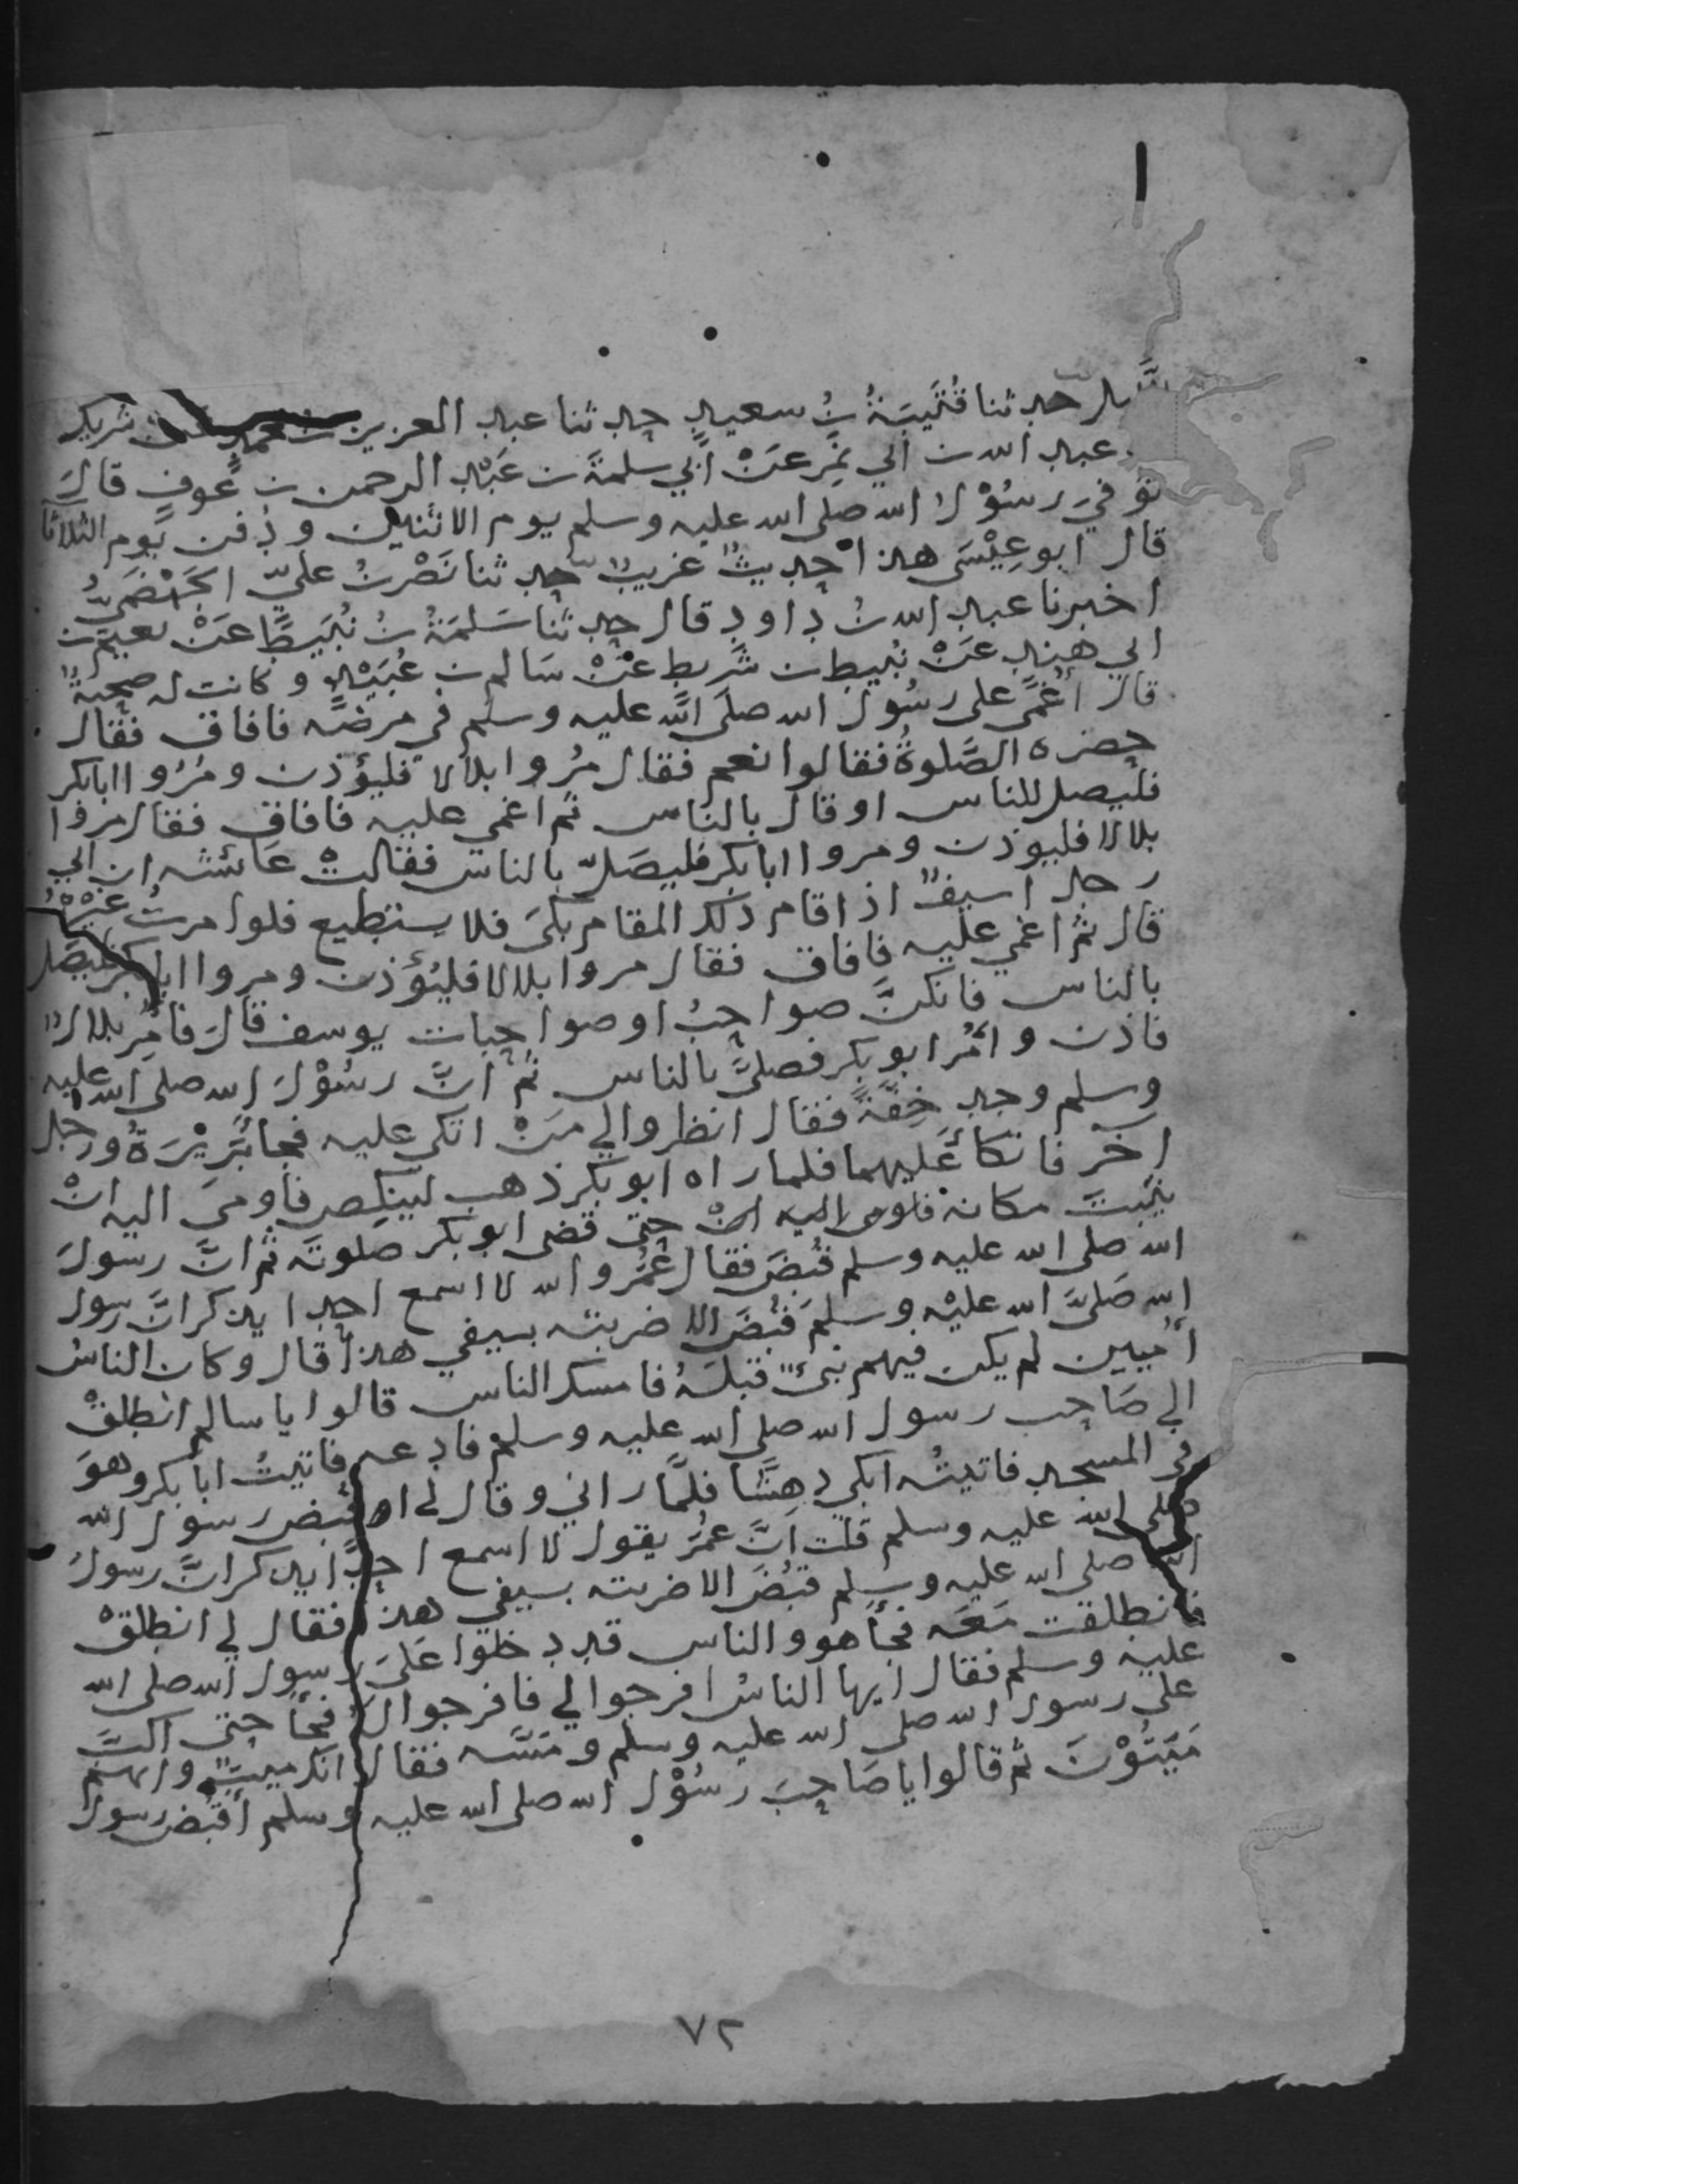 حدثنا قُتَيبَةُ بنُ سعيدٍ حدثنا عبد العزيز بن محمد عن شريك
عبد الله بن ابي نمِر عَنْ ابي سلمةَ بن عَبْد الرحمن بن عَوفٍ قالَ
توفيَ رسُوْل الله صلى الله عليه وسلم يوم الاثنين ودفن يوم الثلاثا
قال ابو عِيْسَى هذا حديثٌ غريبٌ حدثنا نَصْر بنُ عليّ الجَهْضَميُّ
اخبرنا عبد الله بنُ داود قال حدثنا سَلمَةُ بنُ نُبَيطٍ عَنْ نعيم بن
ابي هندٍ عَنْ نُبيط بن شَريط عَنْ سَالم بن عُبَيْد وكانت له صحبةٌ
قال اُغمِيَ على رسُول الله صلى الله عليه وسلم في مرضه فافاق فقال
حضرة الصَّلوةُ فقالوا نعم فقال مرُوا بلالا فليؤذن ومُرُوا ابابكر
فليصل للناس او قال بالناس ثم اغمي عليه فافاق فقال مروا
بلالا فليوذن ومروا ابابكر فليصَلّ بالناس فقالتْ عائشه ان ابي
رجل اسيفٌ اذا قام ذلك المقام بكىَ فلا يستطيع فلو امرتَ غيرَهُ
قال ثم اغمي عليه فافاق فقال مروا بلالا فليُؤذن ومروا ابابكر فليصَل
بالناس فانكنَّ صواحبُ او صواحبات يوسف قالَ فاُمِر بلالٌ
فاذن واُمر ابوبكر فصلىَّ بالناس ثم انَّ رسُوْلَ الله صلى الله عليه
وسلم وجد خِفَّةً فقال انظروا لي مَنْ اتكى عليه فجا بَرِيْرَةُ ورجل
اخر فاتكأ عَليهما فلما راه ابوبكر ذهب لينكص فاومىَ اليه انْ
يثبتَ مكانه فاومى اليه انْ حتى قضى ابو بكر صلوتَه ثم انَّ رسولَ
الله صلى الله عليه وسلم قُبضَ فقال عُمرُ والله لا اسمع احدا يذكر انَّ رسول
الله صَلىَّ الله عليْه وسلمَ قُبضَ الا ضربته بسيفي هذا قال وكان الناسُ
اُميين لم يكن فيهم نبيٌّ قبلهُ فامسك الناس قالوا يا سالم انطلقْ
الي صَاحب رسول الله صلى الله عليه وسلم فادعه فاتيتُ ابابكر وهوَ
في المسجد فاتيتُه ابكي دهِشًا فلمَّا راني وقال لي اَقُبض رسول الله
صلى الله عليه وسلم قلت انَّ عمرُ يقول لا اسمع احدًا يذكر انَّ رسولَ
الله صلى الله عليه وسلم قبُضَ الا ضربته بسيفي هذا فقال لي انطلقْ
فانطلقت مَعَه فجأ هو والناس قد دخلوا عَلىَ رسول الله صلى الله
عليه وسلم فقال ايها الناسُ افرجوا لي فافرجوا لهُ فجأ حتى اكبَّ
على رسول الله صلى الله عليه وسلم ومَسَّه فقال انك ميتٌ وانهم
مَيِّتُوْنَ ثم قالوا يا صَاحبَ رسُوْل الله صلى الله عليه وسلم اَقبُض رسول
٧٢